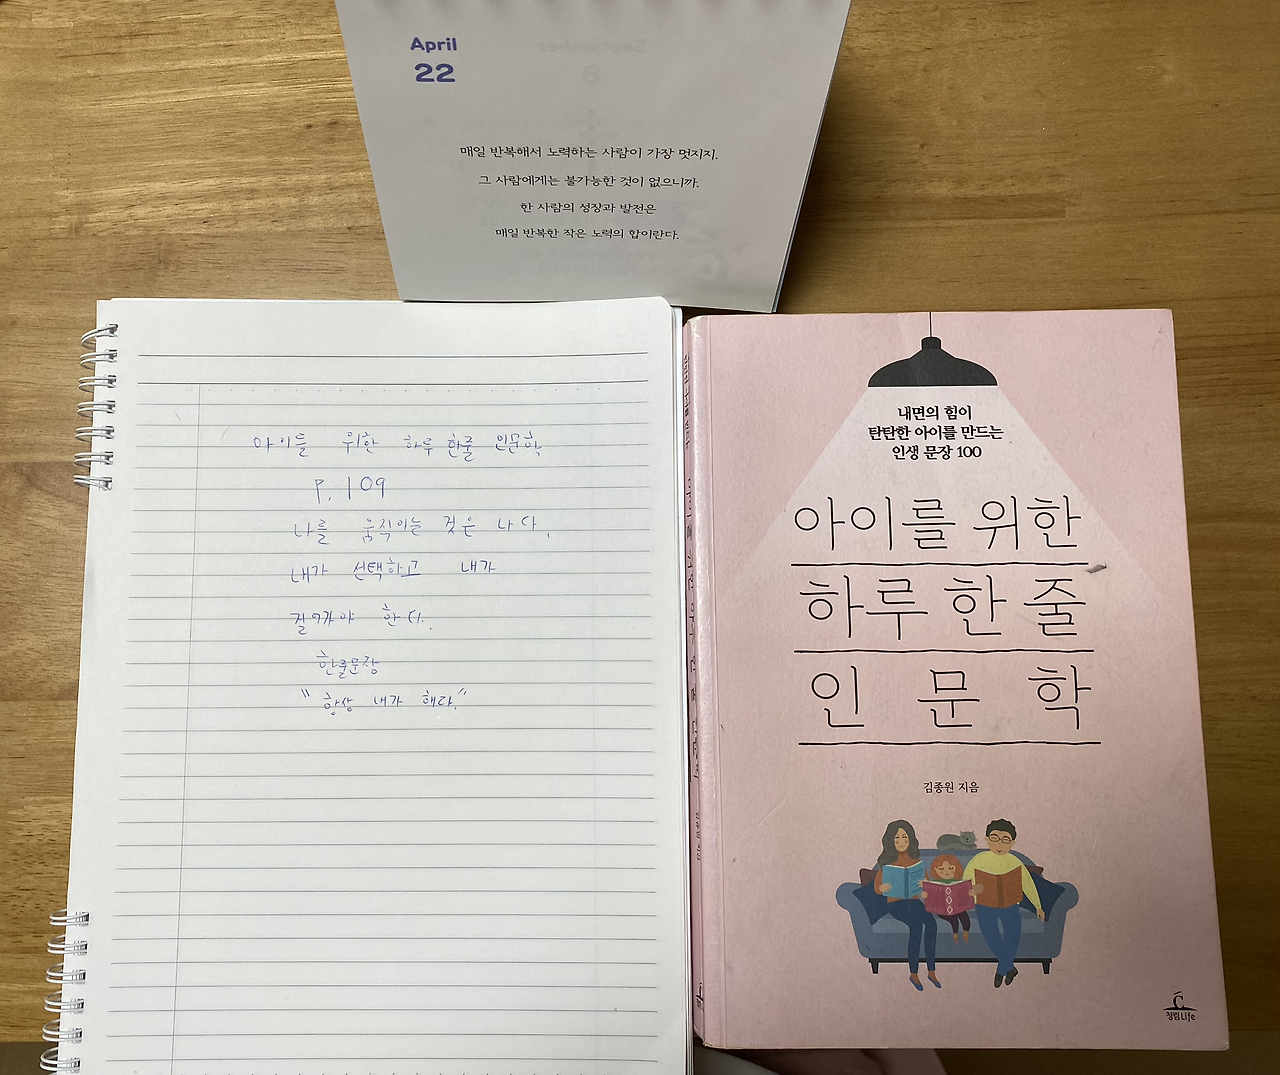 April
22
매일 반복해서 노력하는 사람이 가장 멋지지.
그 사람에게는 불가능한 것이 없으니까.
한 사람의 성장과 발전은
매일 반복한 작은 노력의 합이란다.
아이들 위한 하루 한줄 인문학
P. 109
나를 움직이는 것은 나다.
내가 선택하고 내가
한다.
한줄문장
"항상 내가 해다."
내면의 힘이
탄탄한 아이를 만드는
인생 문장 100
아이를 위한
하루 한 줄
인문학
김종원 지음
청림Life